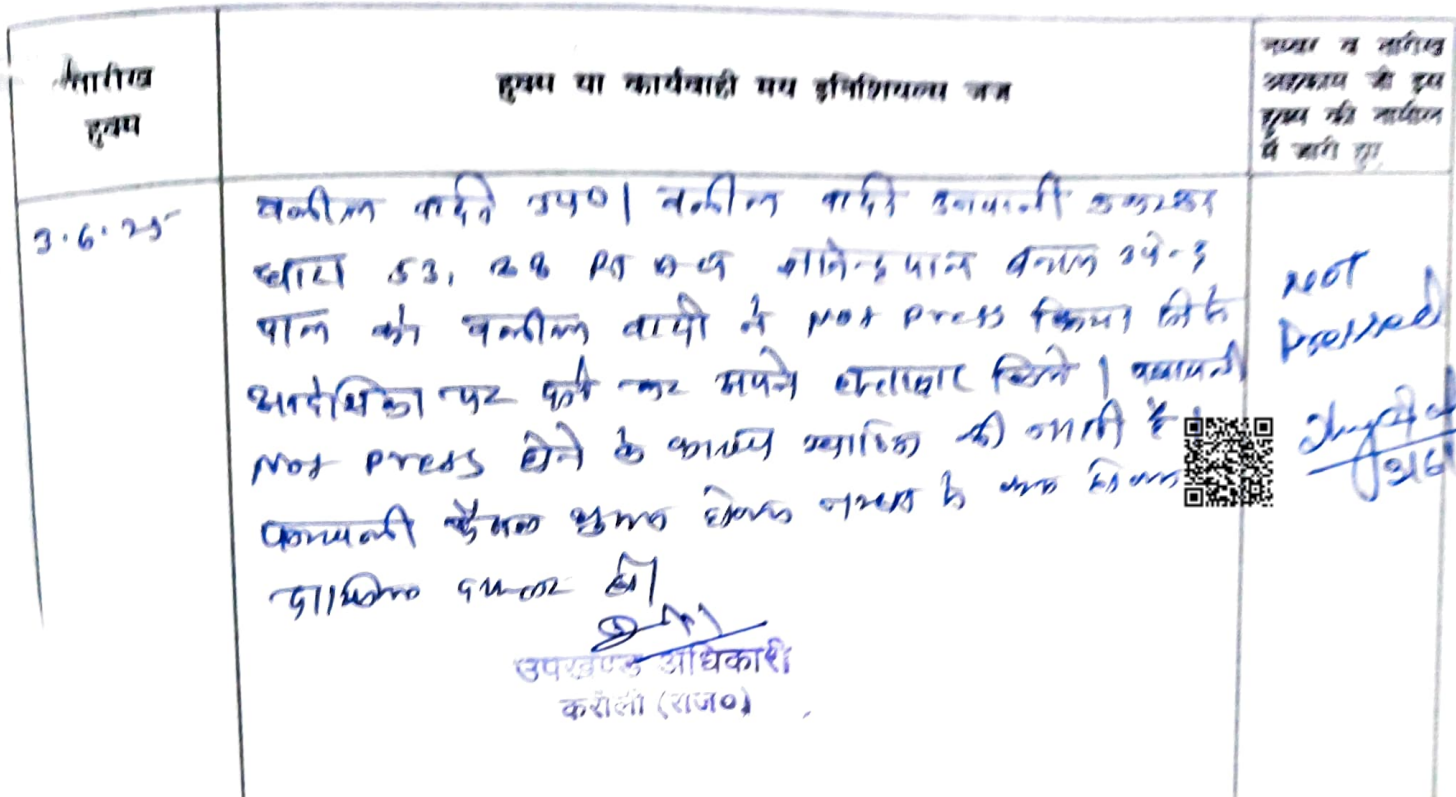 तारीख
हुक्म
हुक्म या कार्यवाही मय इनिशियल्स जज
नम्बर व तारीख
अहकाम जो इस
हुक्म की तामील
में जारी हुए
3.6.25
वकील वादी उप०। वकील वादी
धारा 53, पाल बनाम उपेन्द्र
पाल को वकील वादी ने Not Press किया जिसे
आदेशिका पर कर अपने हस्ताक्षर किये। पत्रावली
Not Press होने के कारण खारिज की जाती है।
पत्रावली फैसल शुमार होकर नम्बर से कम होकर
दाखिल दफ्तर हो।
उपखण्ड अधिकारी
करौली (राज०)
Not
Pressed